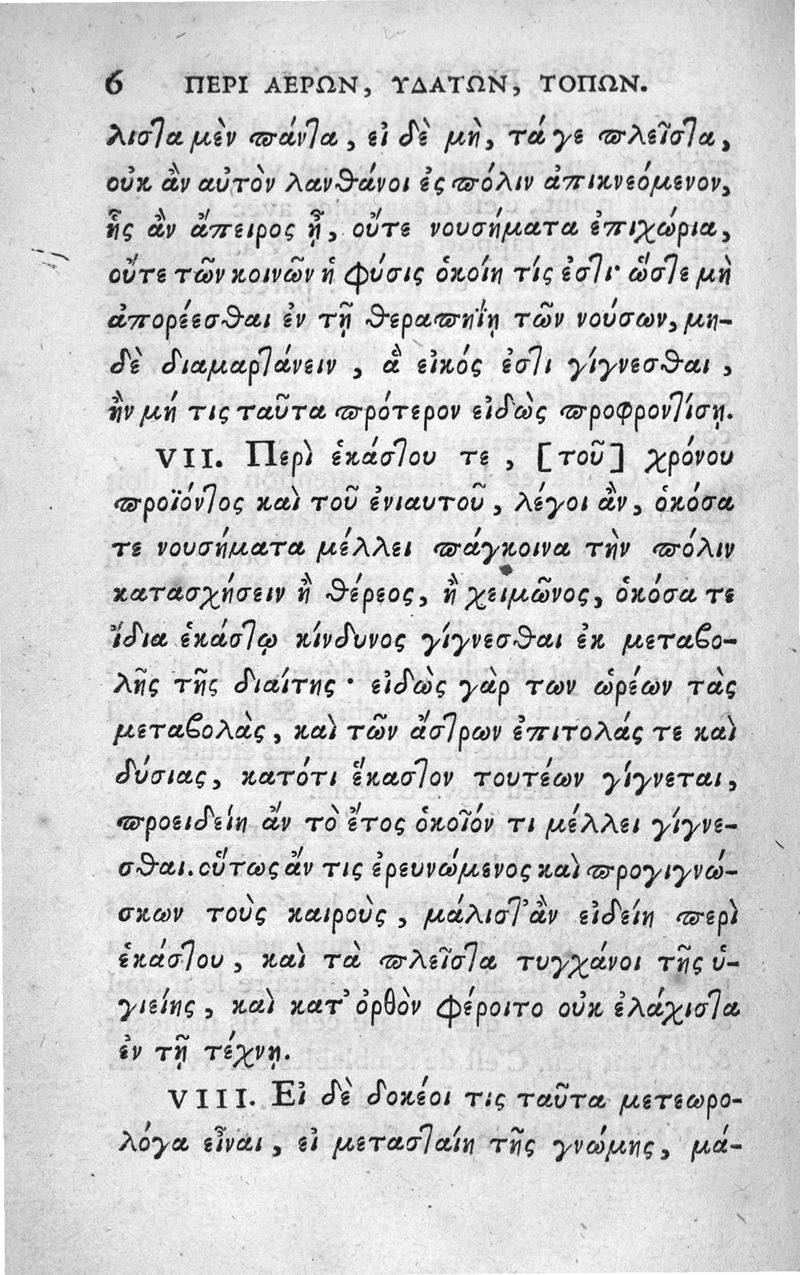 6 ΠΕΡΙ ΑΕΡΩΝ, ΥΔΑΤΩΝ, ΤΟΠΩΝ.
λιστα μὲν πάντα, εἰ δὲ μὴ, τά γε πλεῖστα,
οὐκ ἂν αὐτὸν λανθάνοι ἐς πόλιν ἀπικνεόμενον,
ἧς ἂν ἄπειρος ᾖ, οὔτε νουσήματα ἐπιχώρια,
οὔτε τῶν κοινῶν ἡ φύσις ὁκοίη τίς ἐστι· ὥστε μὴ
ἀπορέεσθαι ἐν τῇ θεραπηΐῃ τῶν νούσων, μη-
δὲ διαμαρτάνειν, ἃ εἰκός ἐστι γίγνεσθαι,
ἢν μή τις ταῦτα πρότερον εἰδὼς προφροντίσῃ.
VII. Περὶ ἑκάστου τε, [τοῦ] χρόνου
προϊόντος καὶ τοῦ ἐνιαυτοῦ, λέγοι ἂν, ὁκόσα
τε νουσήματα μέλλει πάγκοινα τὴν πόλιν
κατασχήσειν ἢ θέρεος, ἢ χειμῶνος, ὁκόσα τε
ἴδια ἑκάστῳ κίνδυνος γίγνεσθαι ἐκ μεταβο-
λῆς τῆς διαίτης· εἰδὼς γὰρ των ὡρέων τὰς
μεταβολὰς, καὶ τῶν ἄστρων ἐπιτολάς τε καὶ
δύσιας, κατότι ἕκαστον τουτέων γίγνεται,
προειδείη ἂν τὸ ἔτος ὁκοῖόν τι μέλλει γίγνε-
σθαι. οὕτως ἄν τις ἐρευνώμενος καὶ προγιγνώ-
σκων τοὺς καιροὺς, μάλιστ' ἂν εἰδείη περὶ
ἑκάστου, καὶ τὰ πλεῖστα τυγχάνοι τῆς ὑ-
γιείης, καὶ κατ' ὀρθὸν φέροιτο οὐκ ἐλάχιστα
ἐν τῇ τέχνῃ.
VIII. Εἰ δὲ δοκέοι τις ταῦτα μετεωρο-
λόγα εἶναι, εἰ μετασταίη τῆς γνώμης, μά-